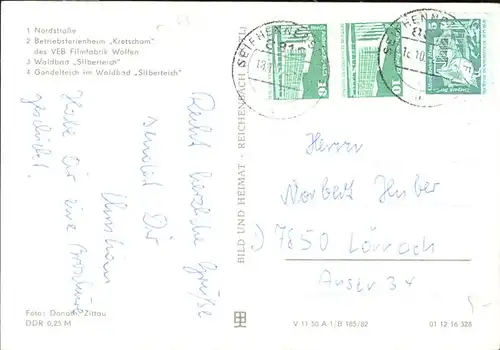 1 Nordstraße
2 Betriebsferienheim „Kretscham"
des VEB Filmfabrik Wolfen
3 Waldbad „Silberteich"
4 Gondelteich im Waldbad „Silberteich"
Recht herzliche Grüße
sendet Dir
Habe Dir eine
geschickt.
Foto: Donath, Zittau
DDR 0,25 M
BILD UND HEIMAT · REICHENBACH
SEIFHENNE
10
10
Herrn
Norbert Huber
7850 Lörrach
34
V 11 50 A 1 B 185/82
01 12 16 328